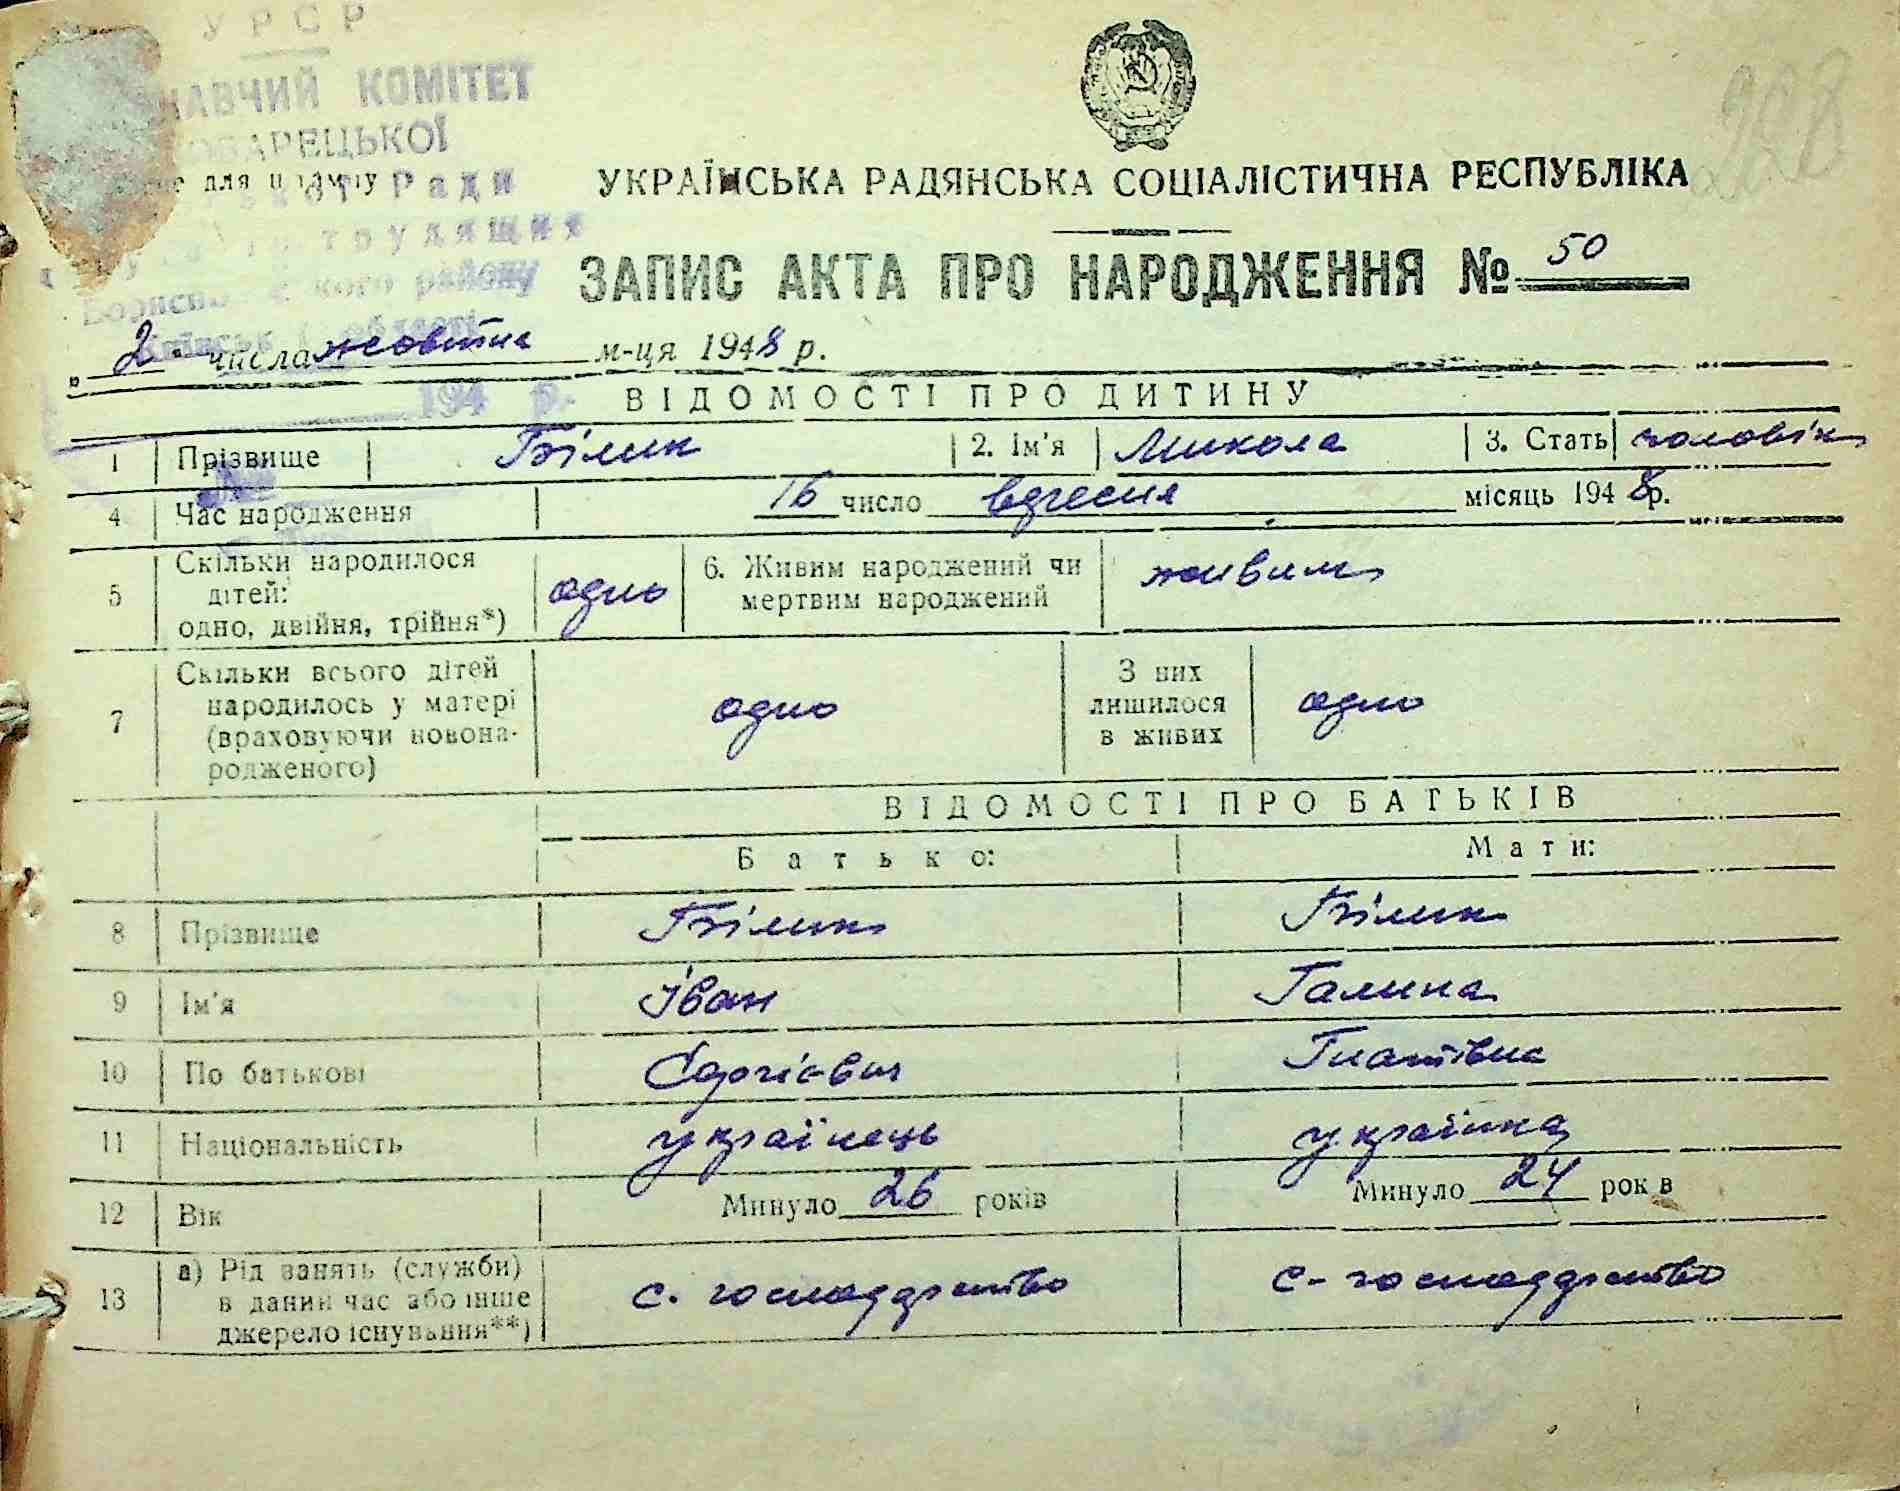 УРСР
НАВЧИЙ КОМІТЕТ
ОВАРЕЦЬКОЇ
для штампу
Ради
трудящих
Борисп кого району
Київськ області
194 р.
228
УКРАЇНСЬКА РАДЯНСЬКА СОЦІАЛІСТИЧНА РЕСПУБЛІКА
ЗАПИС АКТА ПРО НАРОДЖЕННЯ № 50
„ 2 " числа жовтня м-ця 1948 р.
ВІДОМОСТІ ПРО ДИТИНУ
1 Прізвище Білик 2. Ім'я Микола 3. Стать чоловік
4 Час народження 16 число вересня місяць 1948 р.
5 Скільки народилося дітей: одно, двійня, трійня*) одно 6. Живим народжений чи мертвим народжений живим
7 Скільки всього дітей народилось у матері (враховуючи новонародженого) одно З них лишилося в живих одно
ВІДОМОСТІ ПРО БАТЬКІВ
Батько: Мати:
8 Прізвище Білик Білик
9 Ім'я Іван Галина
10 По батькові Сергієвич Гнатівна
11 Національність українець українка
12 Вік Минуло 26 років Минуло 24 рок в
13 а) Рід занять (служби) в даний час або інше джерело існування**) с. господарство с-господарство